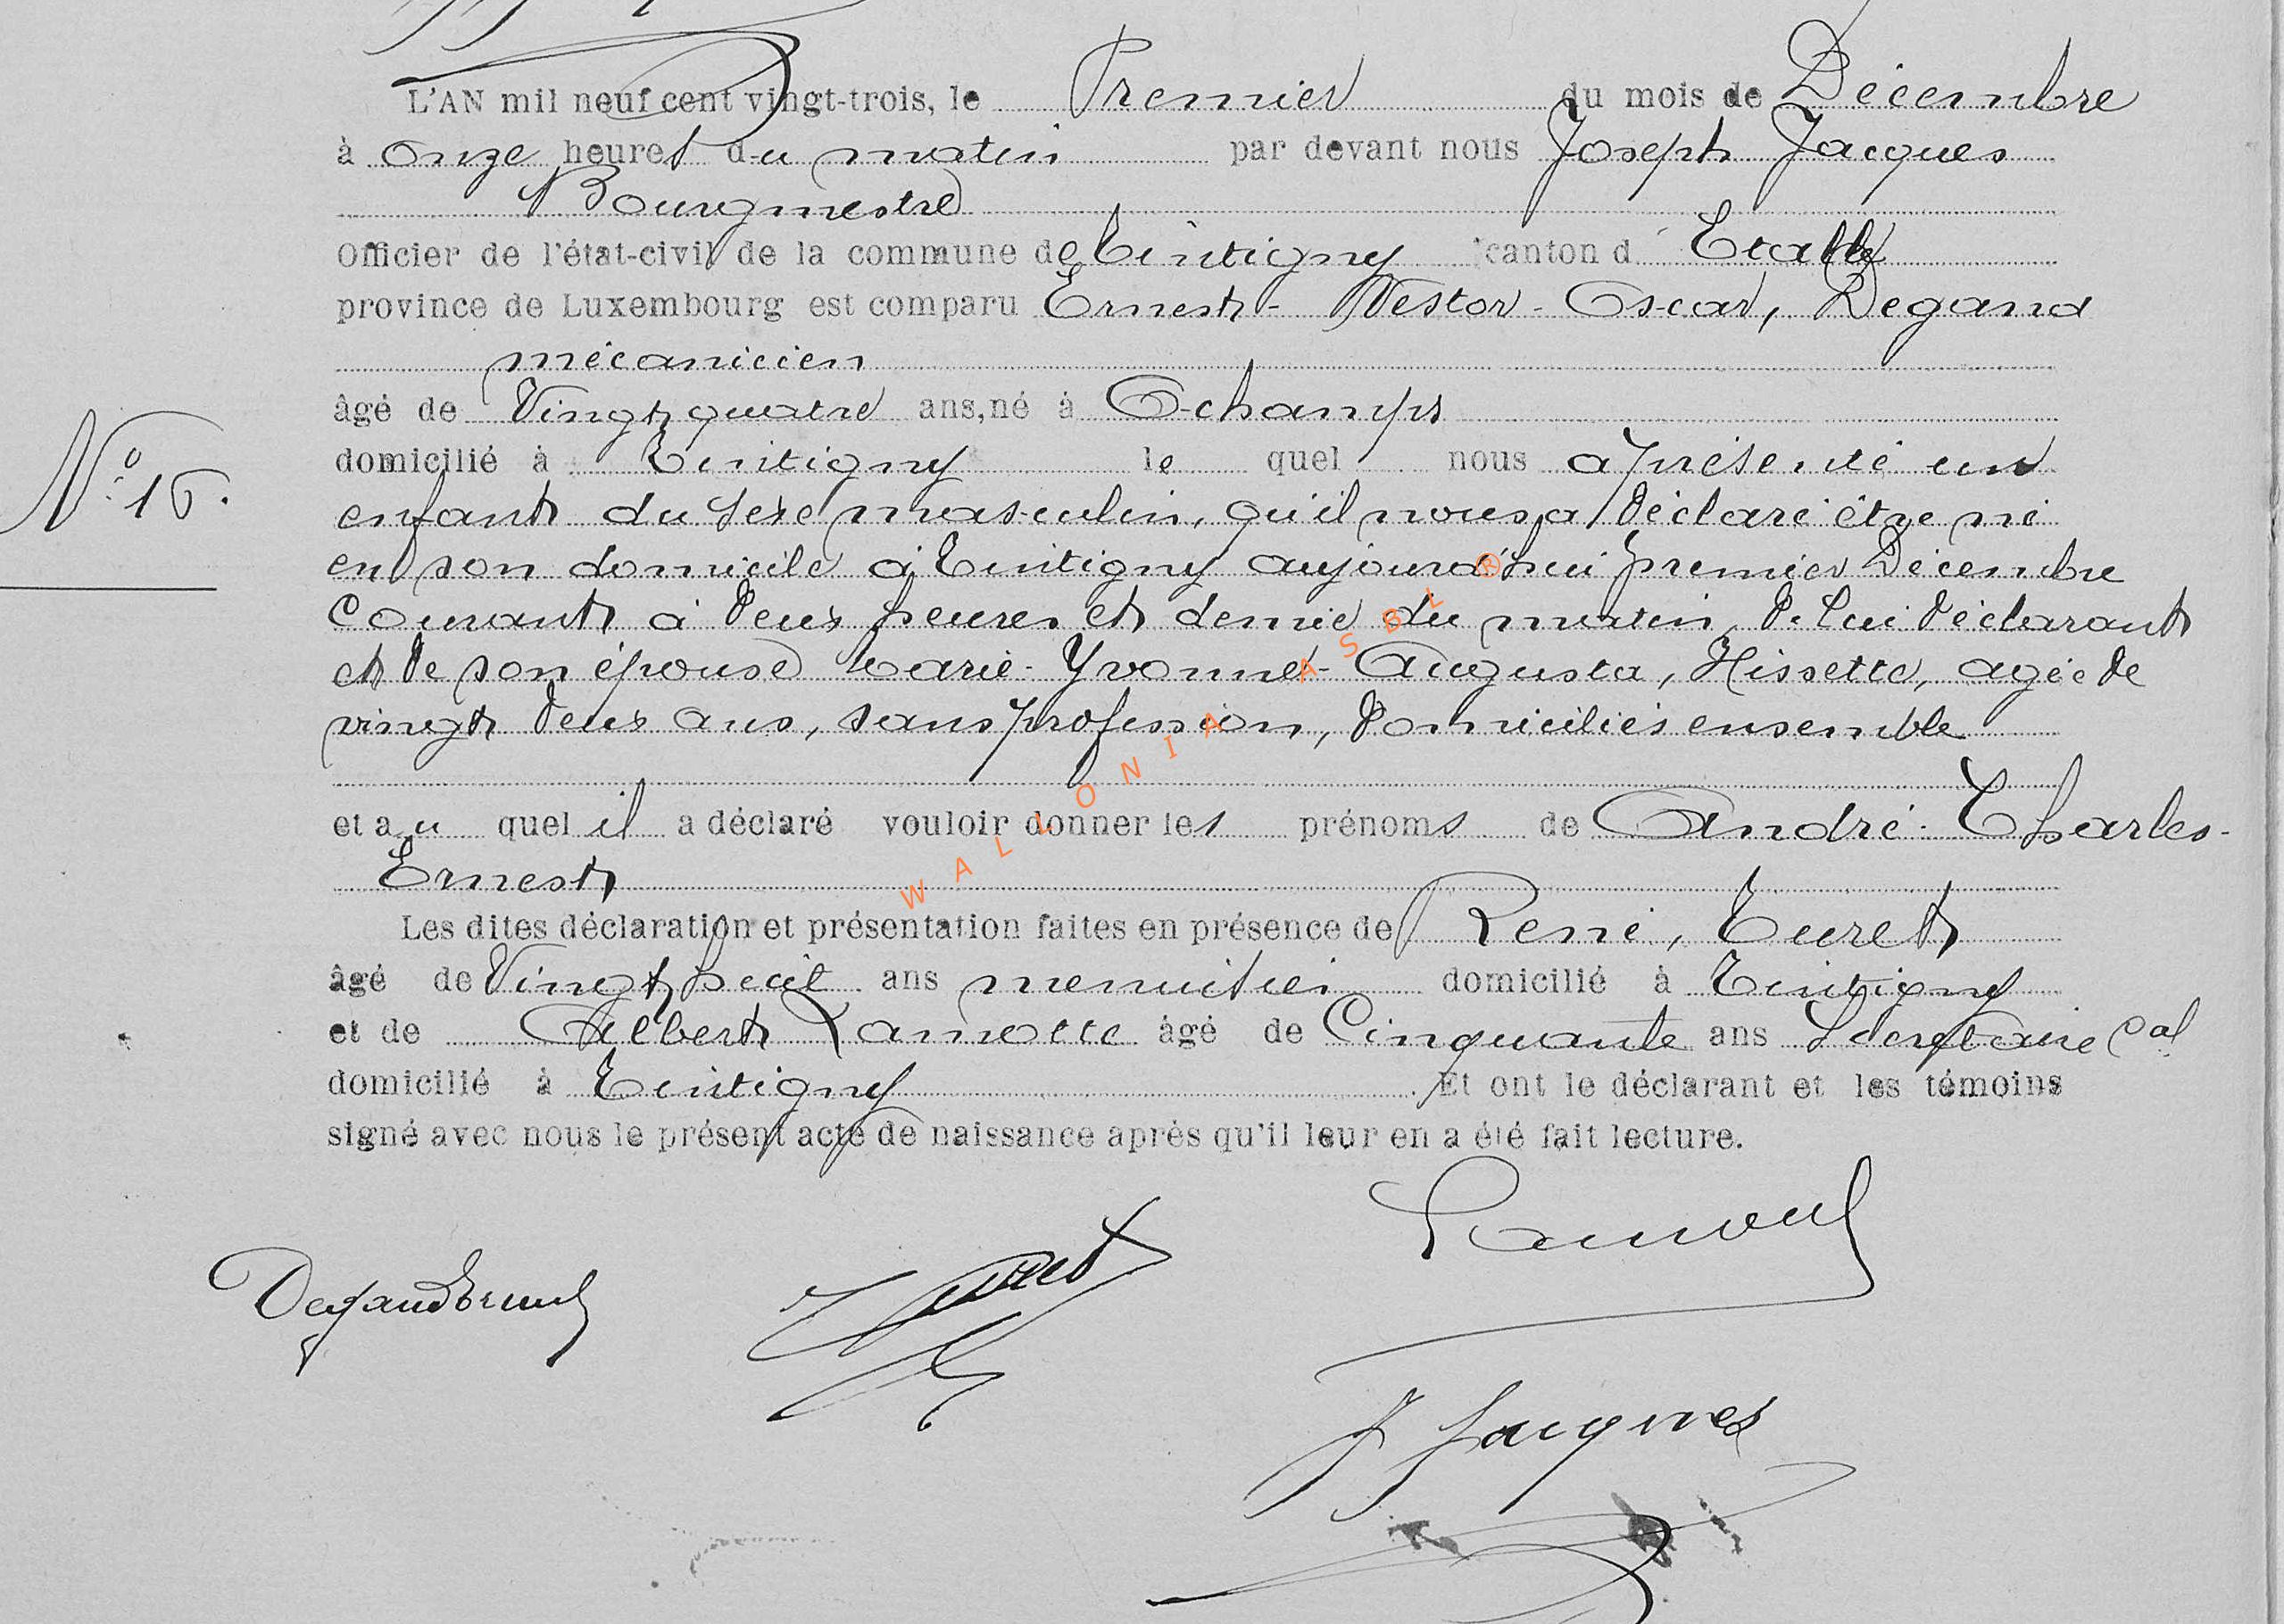 L'AN mil neuf cent vingt-trois, le Premier du mois de Décembre
à onze heures du matin par devant nous Joseph Jacques
Bourgmestre
Officier de l'état-civil de la commune de Tintigny canton d'Etalle
province de Luxembourg est comparu Ernest-Nestor-Oscar, Degand
mécanicien
âgé de Vingt quatre ans, né à Ochamps
domicilié à Tintigny le quel nous a présenté un
N° 16.
enfant du sexe masculin, qu'il nous a déclaré être né
en son domicile à Tintigny aujourd'hui premier Décembre
Courant à deux heures et demie du matin, de lui déclarant
et de son épouse Marie-Yvonne-Augusta, Hissette, agée de
vingt deux ans, sans profession, domiciliés ensemble
et au quel il a déclaré vouloir donner les prénoms de André-Charles-
Ernest
Les dites déclaration et présentation faites en présence de René, Turet
âgé de Vingt huit ans menuisier domicilié à Tintigny
et de Albert Lamotte âgé de Cinquante ans Secrétaire cal
domicilié à Tintigny. Et ont le déclarant et les témoins
signé avec nous le présent acte de naissance après qu'il leur en a été fait lecture.
Degand Ernest
J Jacques
WALLONIA ASBL ®